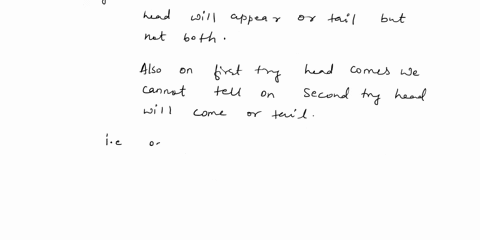 head will appear or tail but
not both.
Also on first try head comes we
cannot tell on second try head
will come or tail.
i.e